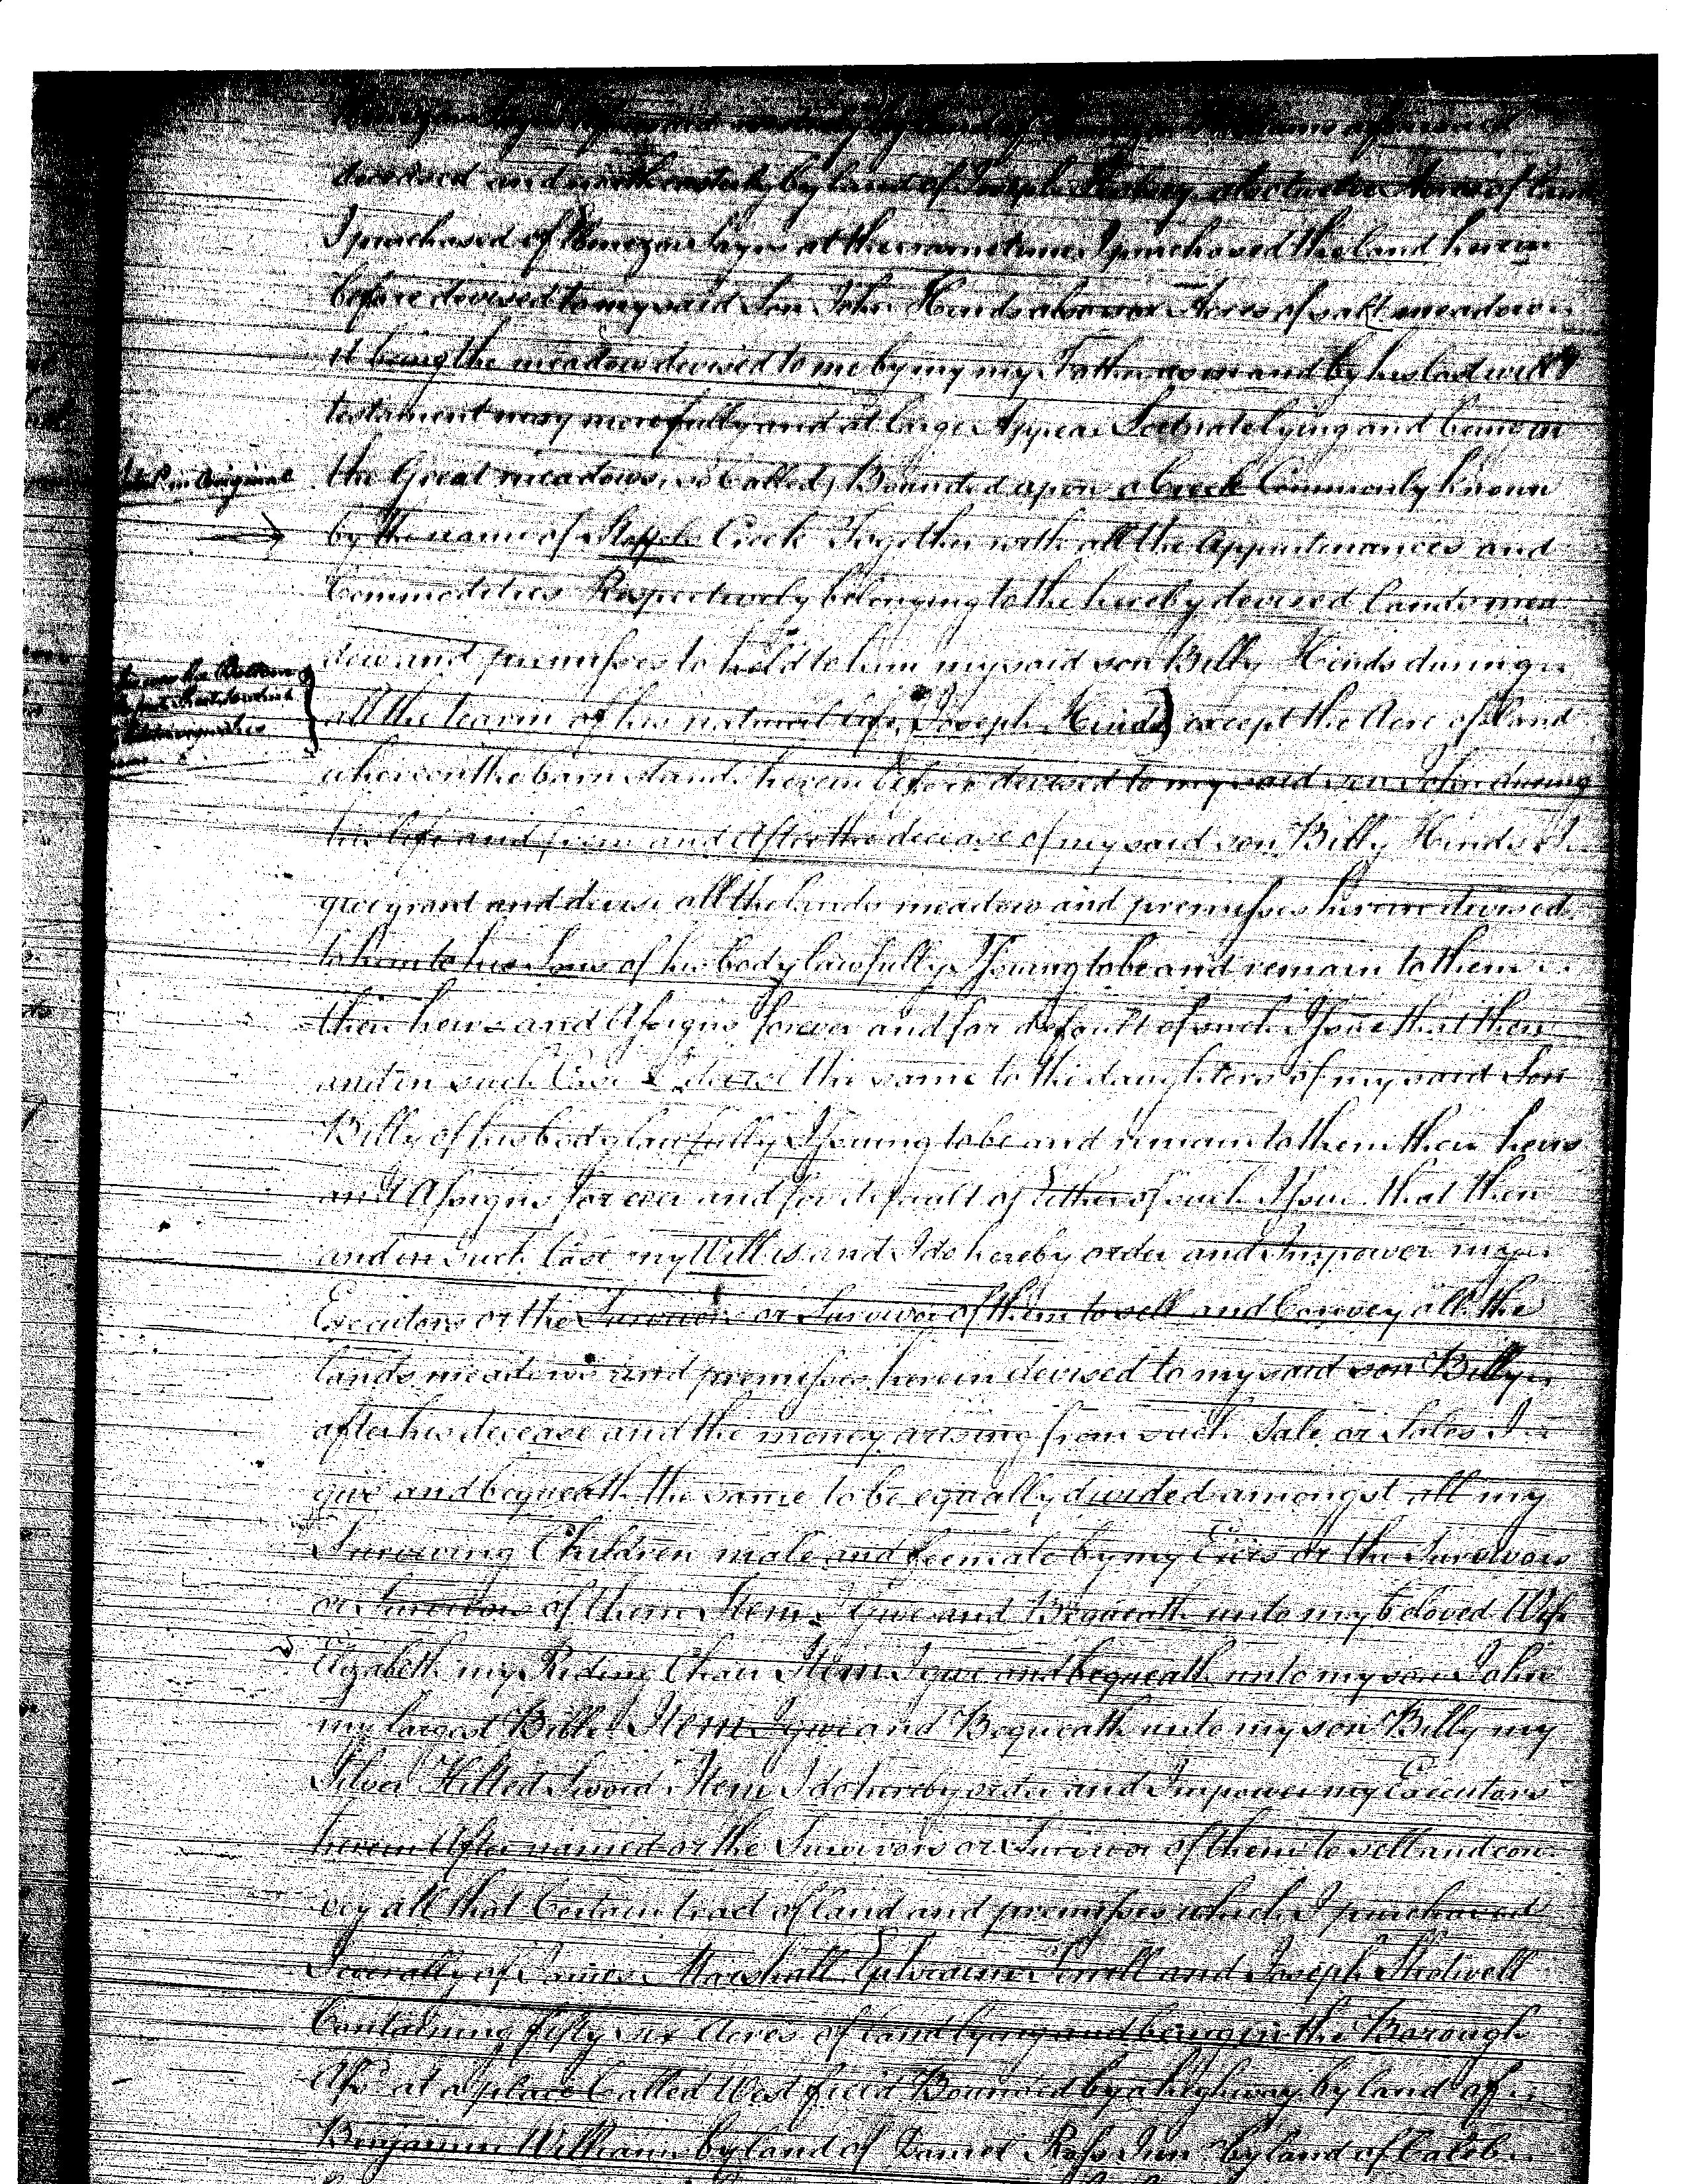 deceased and north easterly by land of Joseph also twelve Acres of Land
I purchased of at the same time I purchased the land herein
before devised to my said Son John Hinds also six Acres of salt meadow
it being the meadow devised to me by my my Father as in and by his last will &
testament may more fully and at large Appear Scituate lying and being in
in Original
the Great meadows, so Called, Bounded upon a Creek Commonly known
by the name of Creek Together with all the Appurtenances and
Commodities Respectively belonging to the hereby devised Lands mea
dow and premisses to hold to him my said son Billy Hinds during
all the tearm of his natural life, Joseph Hinds) except the Acre of land
whereon the barn stands herein before devised to my said son John during
his life and from and After the decease of my said son Billy Hinds I
give grant and devise all the lands meadow and premisses herein devised
to him to his Sons of his body lawfully Issuing to be and remain to them
their heirs and Assigns forever and for default of such Issue that then
and in such Case I devise the same to the daughters of my said Son
Billy of his body lawfully Issuing to be and remain to them their heirs
and Assigns for ever and for default of Either of such Issue that then
and in such Case my Will is and I do hereby order and Impower my
Executors or the Survivors or Survivor of them to sell and Convey all the
lands meadows and premisses herein devised to my said son Billy
after his decease and the money arising from such Sale or Sales I
give and bequeath the same to be equally divided amongst all my
Surviving Children male and feemale by my Exers or the Survivors
or Survivor of them Item I Give and Bequeath unto my beloved Wife
Elizabeth my Riding Chair Item I give and bequeath unto my son John
my largest Bible Item I give and Bequeath unto my son Billy my
Silver Hilted Sword Item I do hereby order and Impower my Executors
herein After named or the Survivors or Survivor of them to sell and con
vey all that Certain tract of land and premisses which I purchased
Severally of James Marshall Ephraim Terrill and Joseph Shotwell
Containing fifty six Acres of land lying and being in the Borough
Afsd at a place Called West field Bounded by a highway by land of
Benjamin Williams by land of Daniel Ross Jun by land of Caleb